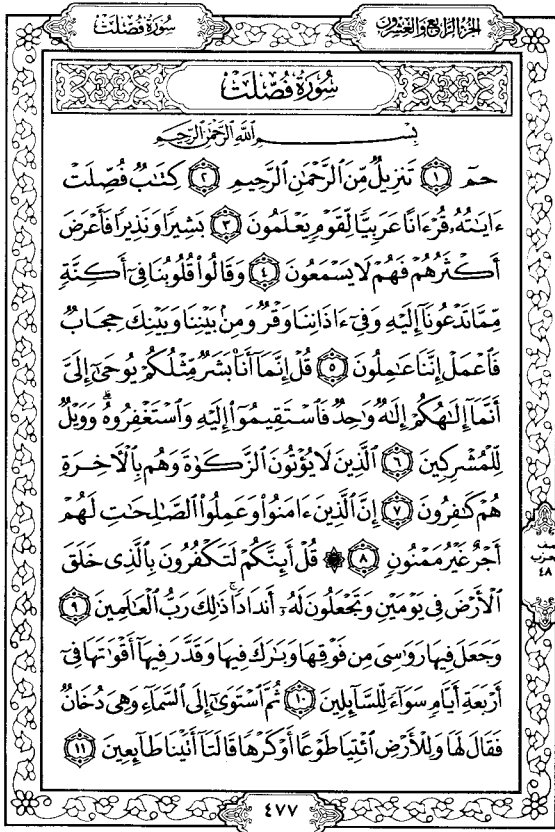 الجزء الرابع والعشرون
سُورَةُ فُصِّلَتْ
سُورَةُ فُصِّلَتْ
بِسْمِ ٱللَّهِ ٱلرَّحْمَٰنِ ٱلرَّحِيمِ
حمٓ ١ تَنزِيلٌ مِّنَ ٱلرَّحْمَٰنِ ٱلرَّحِيمِ ٢ كِتَٰبٌ فُصِّلَتْ
ءَايَٰتُهُۥ قُرْءَانًا عَرَبِيًّا لِّقَوْمٍ يَعْلَمُونَ ٣ بَشِيرًا وَنَذِيرًا فَأَعْرَضَ
أَكْثَرُهُمْ فَهُمْ لَا يَسْمَعُونَ ٤ وَقَالُوا۟ قُلُوبُنَا فِىٓ أَكِنَّةٍ
مِّمَّا تَدْعُونَآ إِلَيْهِ وَفِىٓ ءَاذَانِنَا وَقْرٌ وَمِنۢ بَيْنِنَا وَبَيْنِكَ حِجَابٌ
فَٱعْمَلْ إِنَّنَا عَٰمِلُونَ ٥ قُلْ إِنَّمَآ أَنَا۠ بَشَرٌ مِّثْلُكُمْ يُوحَىٰٓ إِلَىَّ
أَنَّمَآ إِلَٰهُكُمْ إِلَٰهٌ وَٰحِدٌ فَٱسْتَقِيمُوٓا۟ إِلَيْهِ وَٱسْتَغْفِرُوهُ ۗ وَوَيْلٌ
لِّلْمُشْرِكِينَ ٦ ٱلَّذِينَ لَا يُؤْتُونَ ٱلزَّكَوٰةَ وَهُم بِٱلْءَاخِرَةِ
هُمْ كَٰفِرُونَ ٧ إِنَّ ٱلَّذِينَ ءَامَنُوا۟ وَعَمِلُوا۟ ٱلصَّٰلِحَٰتِ لَهُمْ
أَجْرٌ غَيْرُ مَمْنُونٍ ٨ ۞ قُلْ أَئِنَّكُمْ لَتَكْفُرُونَ بِٱلَّذِى خَلَقَ
ٱلْأَرْضَ فِى يَوْمَيْنِ وَتَجْعَلُونَ لَهُۥٓ أَندَادًا ۚ ذَٰلِكَ رَبُّ ٱلْعَٰلَمِينَ ٩
وَجَعَلَ فِيهَا رَوَٰسِىَ مِن فَوْقِهَا وَبَٰرَكَ فِيهَا وَقَدَّرَ فِيهَآ أَقْوَٰتَهَا فِىٓ
أَرْبَعَةِ أَيَّامٍ سَوَآءً لِّلسَّآئِلِينَ ١٠ ثُمَّ ٱسْتَوَىٰٓ إِلَى ٱلسَّمَآءِ وَهِىَ دُخَانٌ
فَقَالَ لَهَا وَلِلْأَرْضِ ٱئْتِيَا طَوْعًا أَوْ كَرْهًا قَالَتَآ أَتَيْنَا طَآئِعِينَ ١١
الحزب
٤٨
٤٧٧